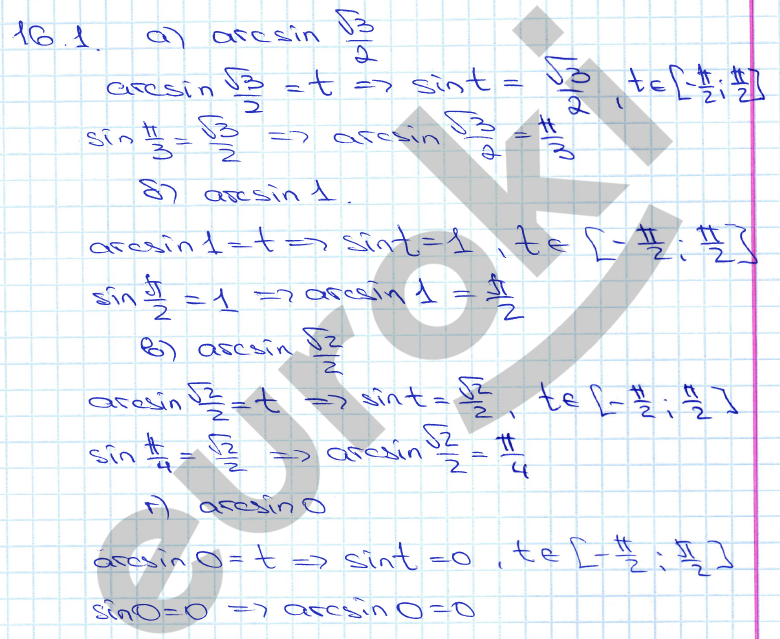 16.1. а) arcsin √3/2
arcsin √3/2 = t => sint = √3/2, t ∈ [-π/2; π/2]
sin π/3 = √3/2 => arcsin √3/2 = π/3
б) arcsin 1.
arcsin 1 = t => sint = 1, t ∈ [-π/2; π/2]
sin π/2 = 1 => arcsin 1 = π/2
в) arcsin √2/2
arcsin √2/2 = t => sint = √2/2, t ∈ [-π/2; π/2]
sin π/4 = √2/2 => arcsin √2/2 = π/4
г) arcsin 0
arcsin 0 = t => sint = 0, t ∈ [-π/2; π/2]
sin 0 = 0 => arcsin 0 = 0
euroki